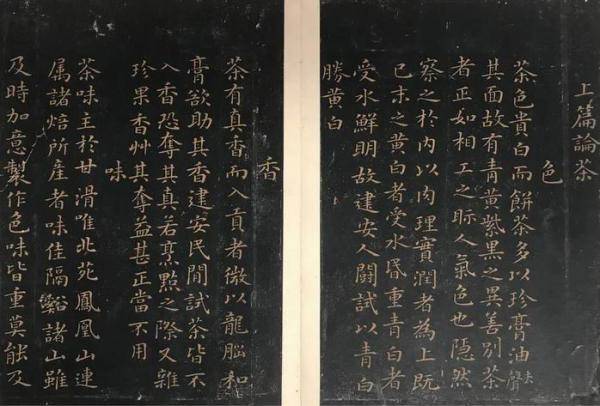 上篇論茶
色
茶色貴白而餅茶多以珍膏油去聲
其面故有青黃紫黑之異善別茶
者正如相工之眎人氣色也隱然
察之於內以肉理實潤者為上既
已末之黃白者受水昬重青白者
受水鮮明故建安人鬭試以青白
勝黃白
香
茶有真香而入貢者微以龍腦和
膏欲助其香建安民間試茶皆不
入香恐奪其真若烹點之際又雜
珍果香艸其奪益甚正當不用
味
茶味主於甘滑唯北苑鳳凰山連
属諸焙所產者味佳隔谿諸山雖
及時加意製作色味皆重莫能及